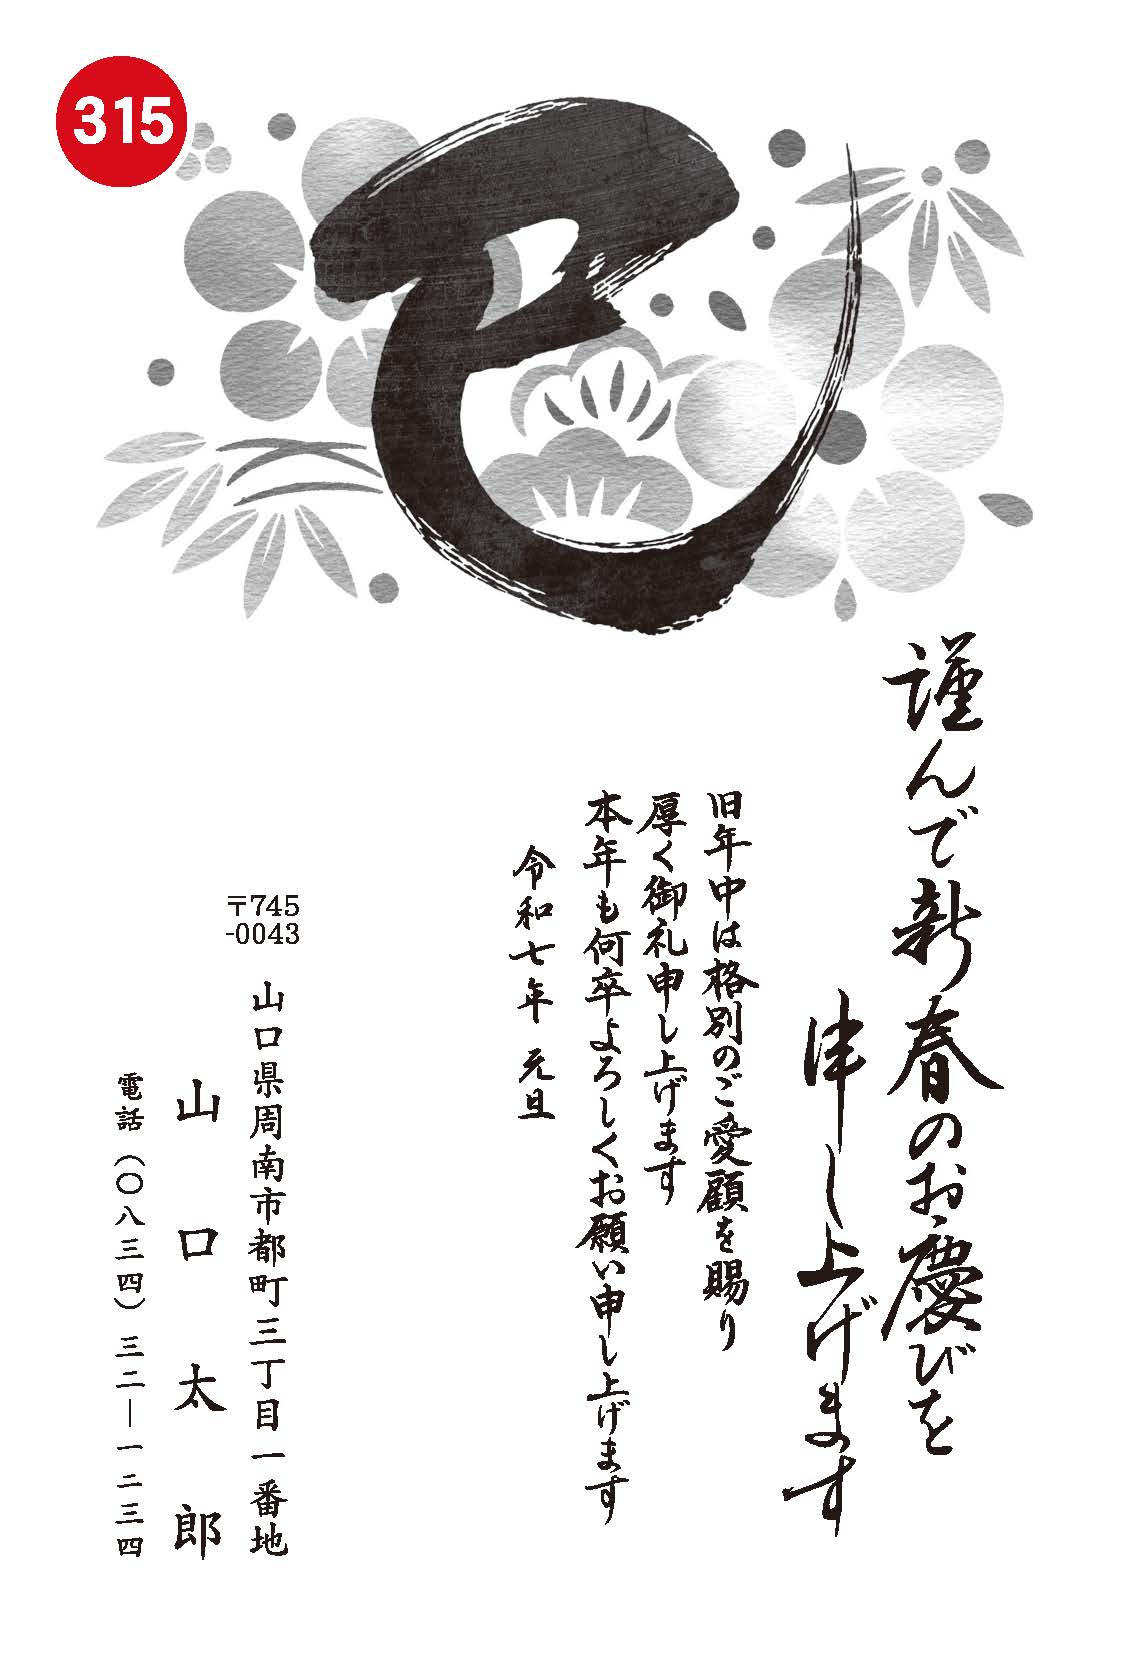 315
巳
謹んで新春のお慶びを
申し上げます
旧年中は格別のご愛顧を賜り
厚く御礼申し上げます
本年も何卒よろしくお願い申し上げます
令和七年 元旦
〒745
-0043
山口県周南市都町三丁目一番地
山口太郎
電話(〇八三四)三二―一二三四